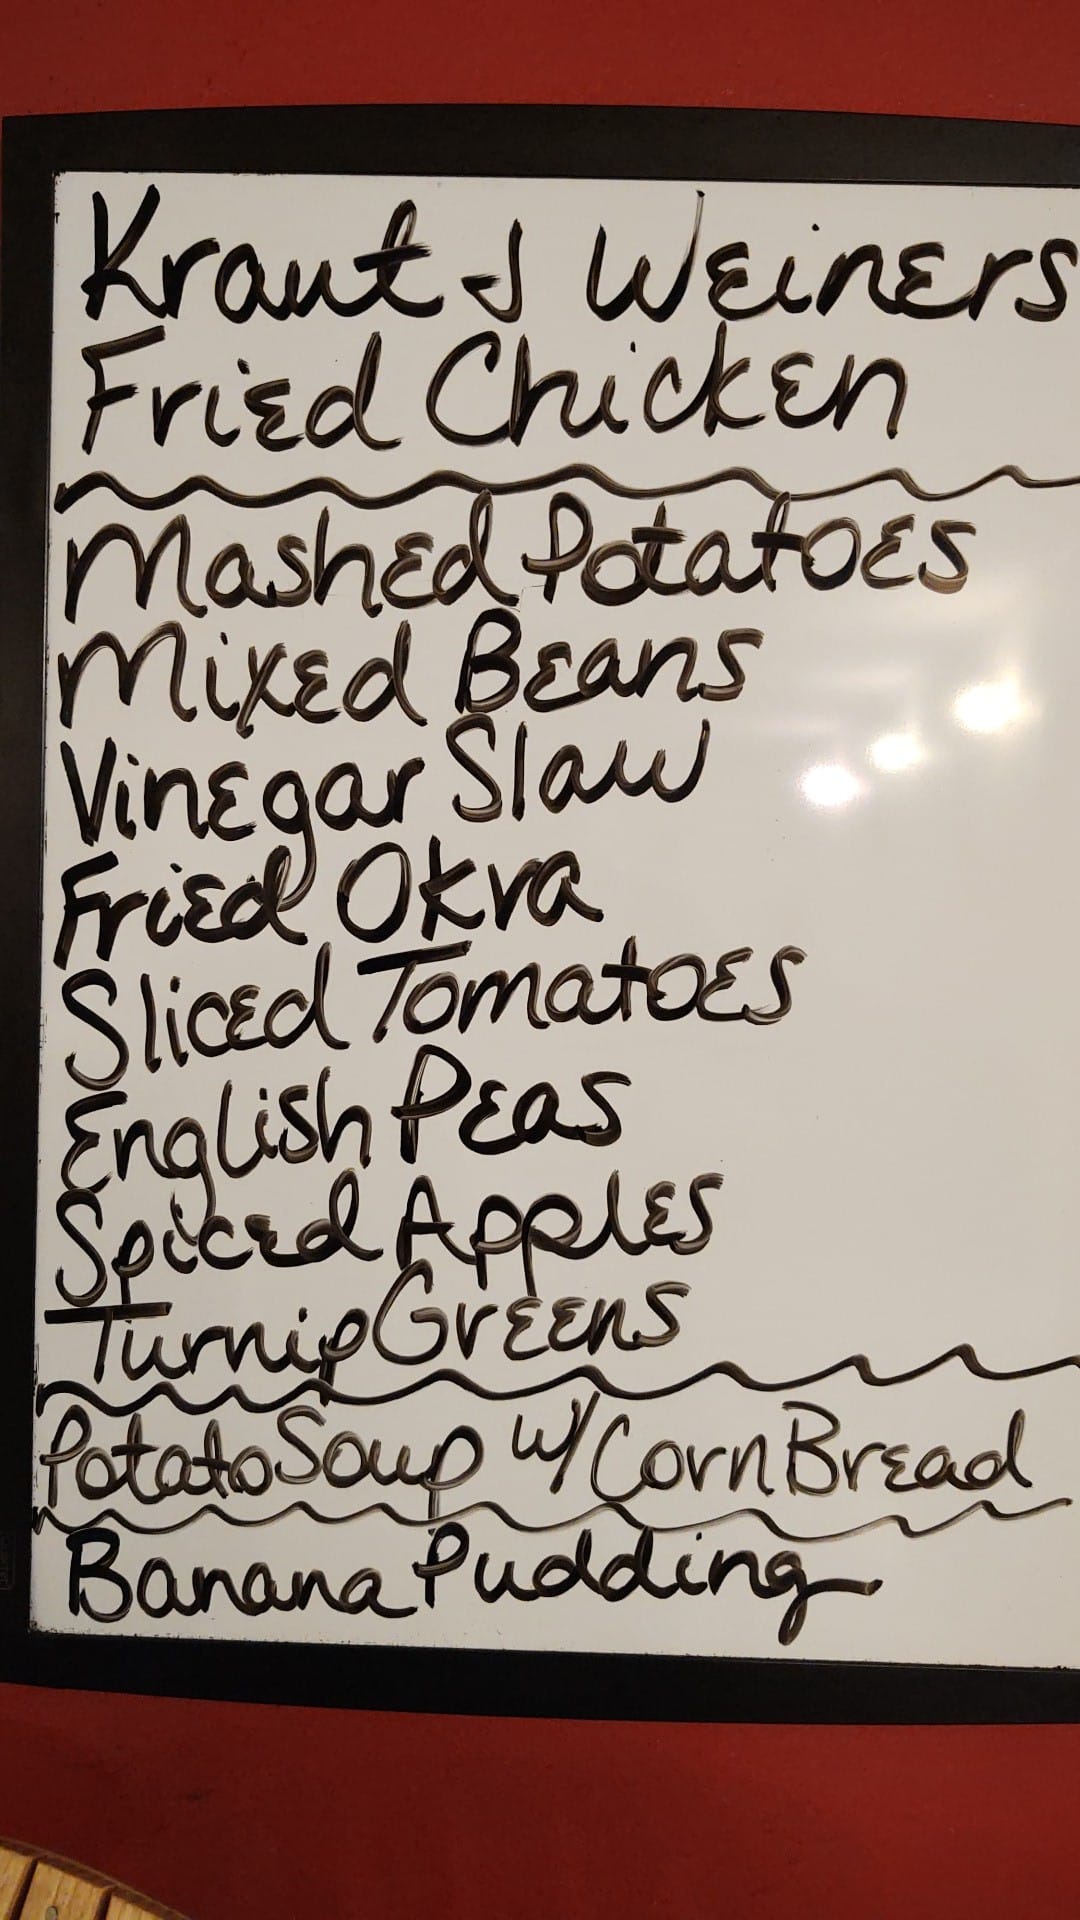 Kraut & Weiners
Fried Chicken
Mashed Potatoes
Mixed Beans
Vinegar Slaw
Fried Okra
Sliced Tomatoes
English Peas
Spiced Apples
Turnip Greens
Potato Soup w/ Corn Bread
Banana Pudding